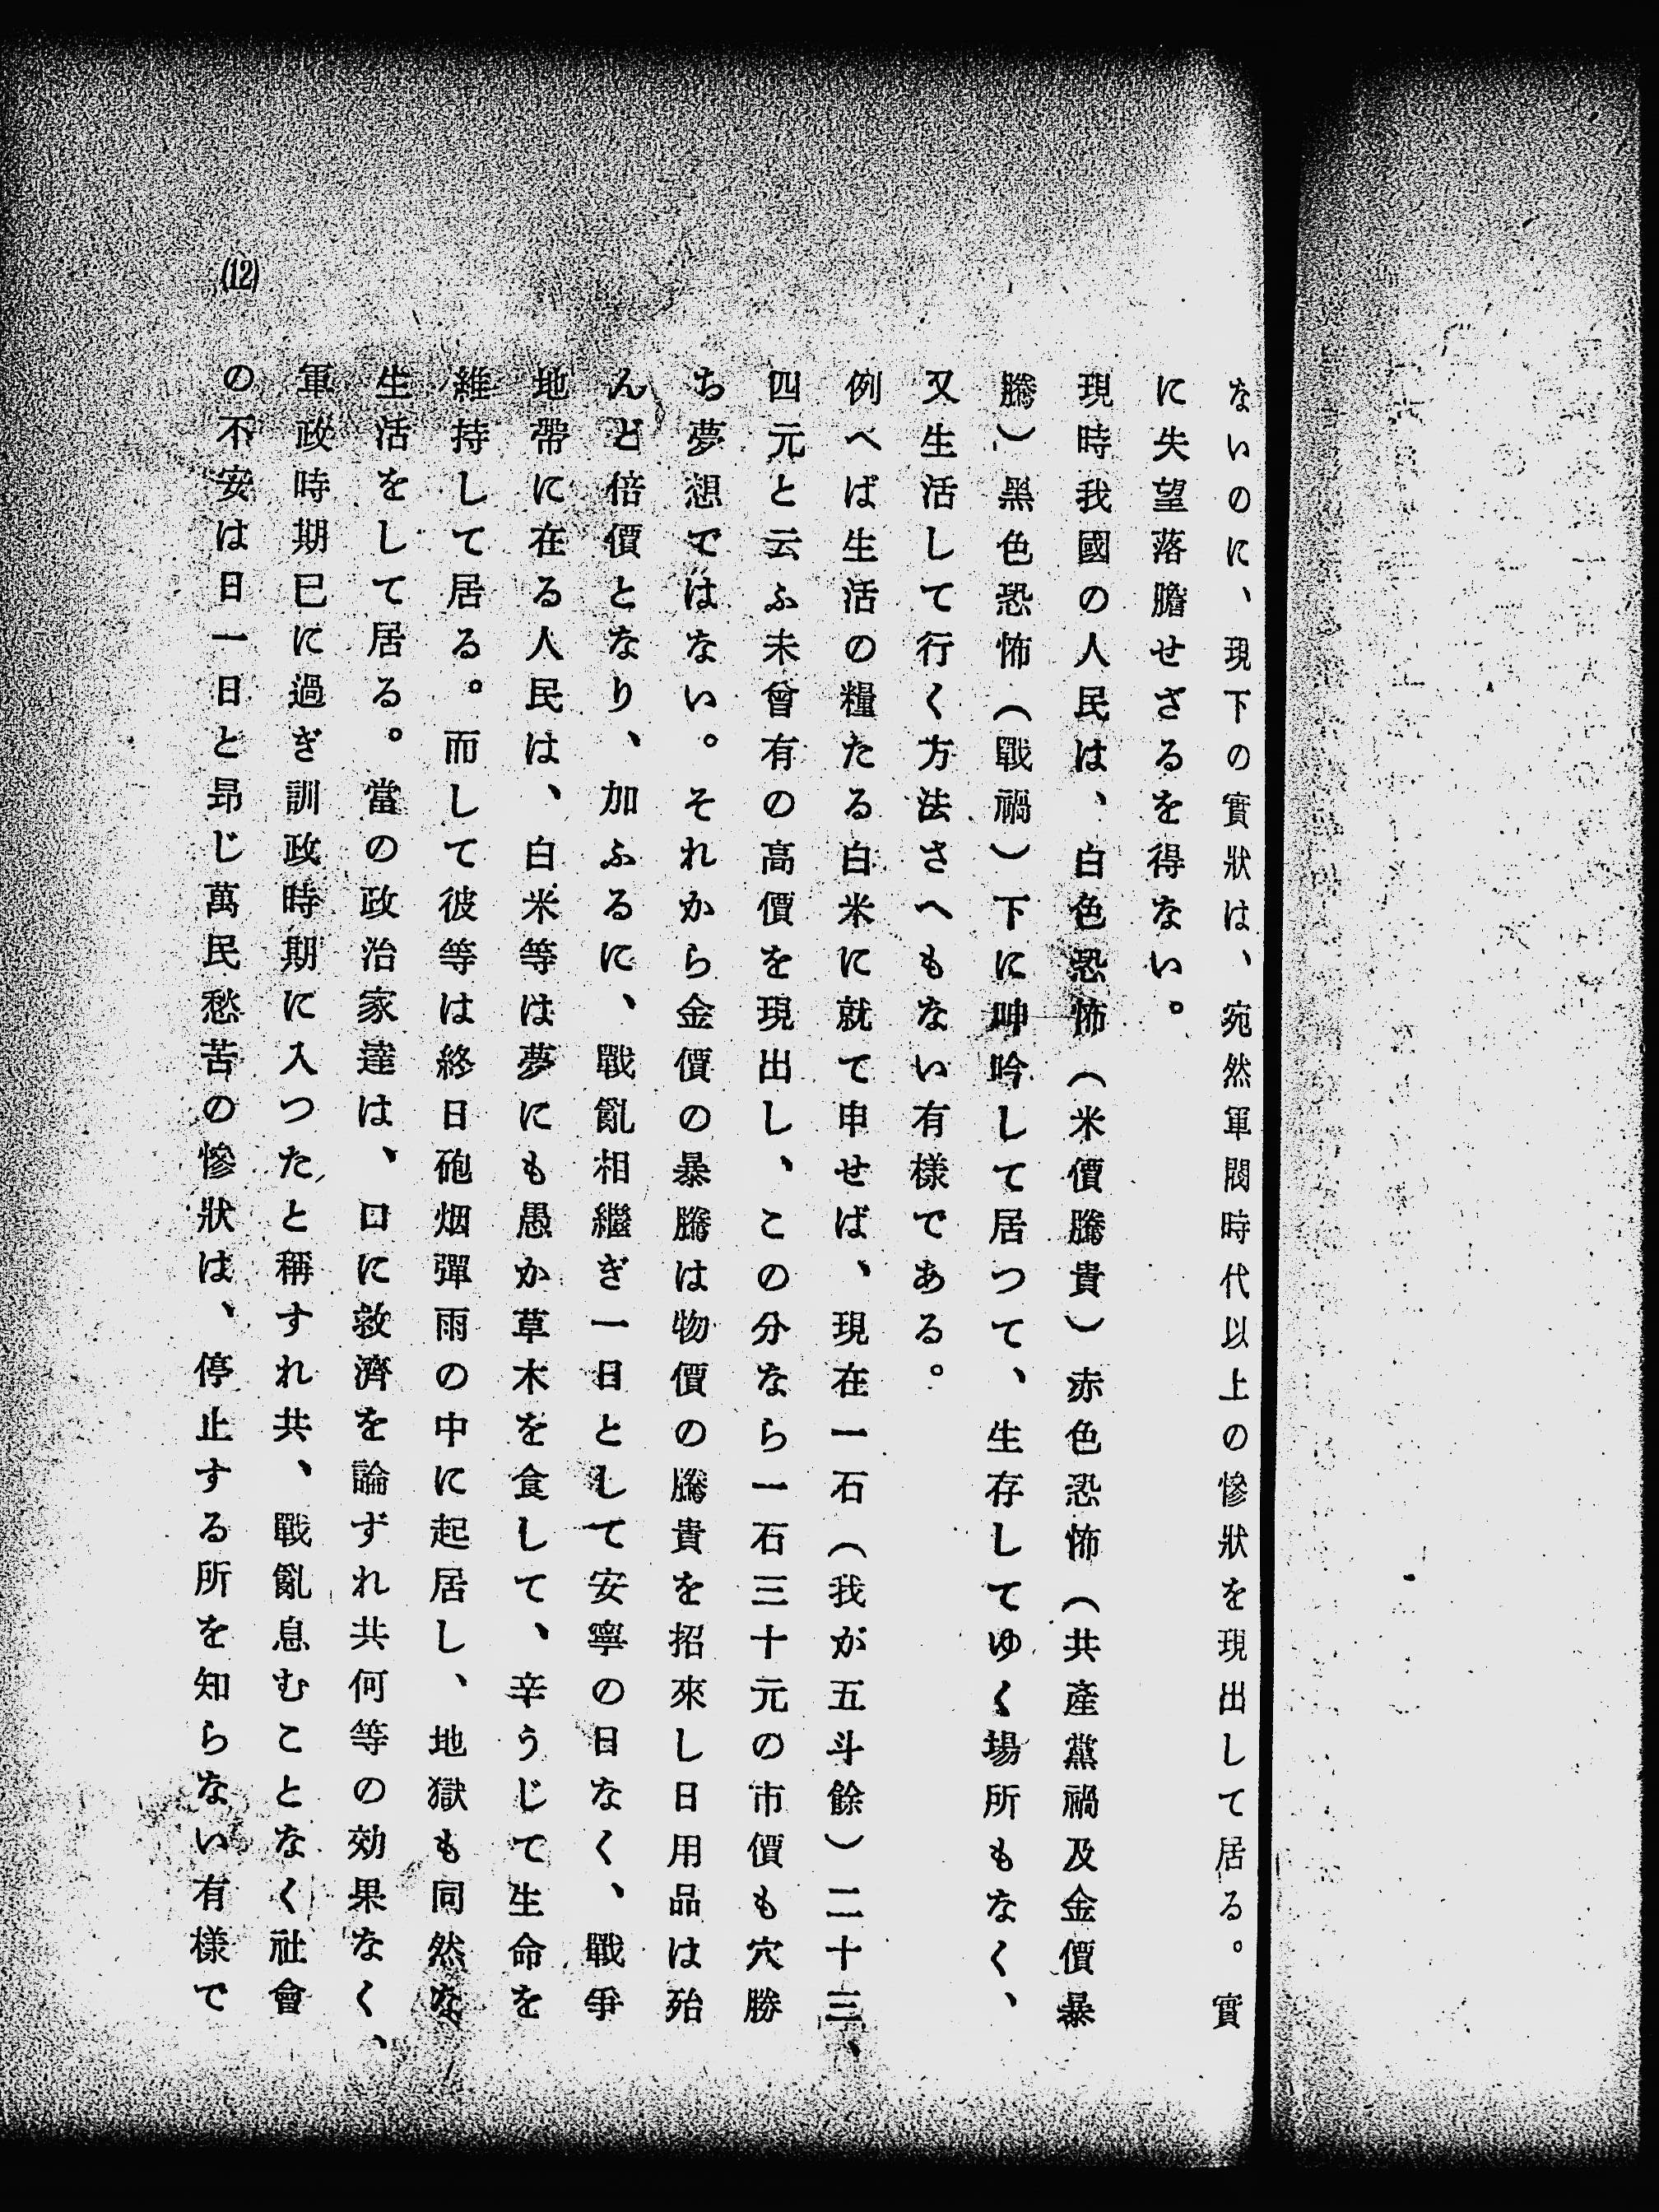 ないのに、現下の實狀は、宛然軍閥時代以上の慘狀を現出して居る。實
に失望落膽せざるを得ない。
現時我國の人民は、白色恐怖（米價騰貴）赤色恐怖（共產黨禍及金價暴
騰）黑色恐怖（戰禍）下に呻吟して居つて、生存してゆく場所もなく、
又生活して行く方法さへもない有樣である。
例へば生活の糧たる白米に就て申せば、現在一石（我が五斗餘）二十三、
四元と云ふ未曾有の高價を現出し、この分なら一石三十元の市價も穴勝
ち夢想ではない。それから金價の暴騰は物價の騰貴を招來し日用品は殆
んど倍價となり、加ふるに、戰亂相繼ぎ一日として安寧の日なく、戰爭
地帶に在る人民は、白米等は夢にも愚か草木を食して、辛うじて生命を
維持して居る。而して彼等は終日砲烟彈雨の中に起居し、地獄も同然な
生活をして居る。當の政治家達は、口に救濟を論ずれ共何等の効果なく、
軍政時期已に過ぎ訓政時期に入つたと稱すれ共、戰亂息むことなく社會
の不安は日一日と昻じ萬民愁苦の慘狀は、停止する所を知らない有樣で
(12)